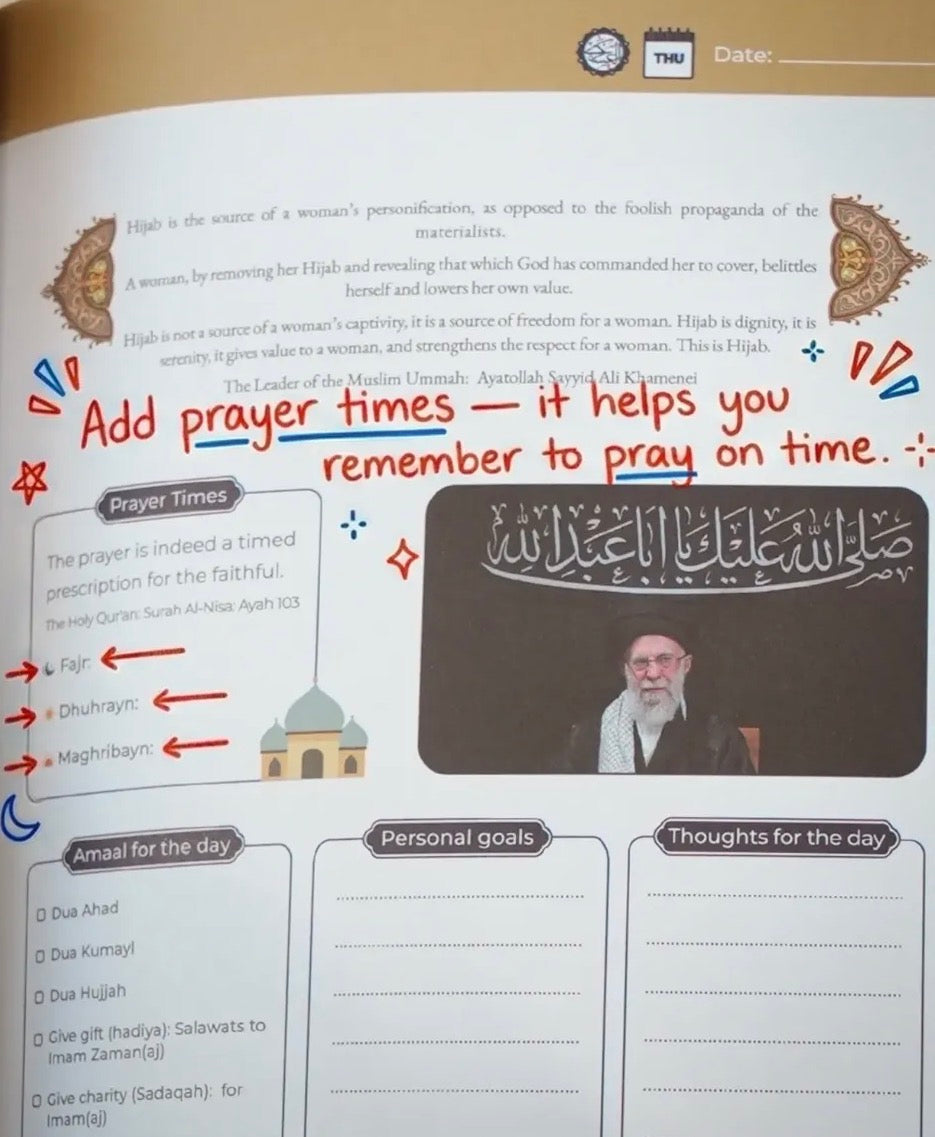 THU
Date:
Hijab is the source of a woman's personification, as opposed to the foolish propaganda of the
materialists.
A woman, by removing her Hijab and revealing that which God has commanded her to cover, belittles
herself and lowers her own value.
Hijab is not a source of a woman's captivity, it is a source of freedom for a woman. Hijab is dignity, it is
serenity, it gives value to a woman, and strengthens the respect for a woman. This is Hijab.
The Leader of the Muslim Ummah: Ayatollah Sayyid Ali Khamenei
Add prayer times — it helps you
remember to pray on time.
Prayer Times
The prayer is indeed a timed
prescription for the faithful.
The Holy Qur'an: Surah Al-Nisa: Ayah 103
Fajr:
Dhuhrayn:
Maghribayn:
صَلَّى اللهُ عَلَيْكَ يا اَبا عَبْدِ اللهِ
Amaal for the day
Dua Ahad
Dua Kumayl
Dua Hujjah
Give gift (hadiya): Salawats to
Imam Zaman(aj)
Give charity (Sadaqah): for
Imam(aj)
Personal goals
Thoughts for the day